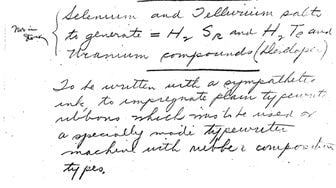 Selenium and Tellurium salts
to generate = H2 SR and H2 Te and
Uranium compounds (Developer)
To be written with a sympathetic
ink to impregnate plain typewrit
ribbons which must be used on
a specially made typewriter
machine with rubber composition
types.